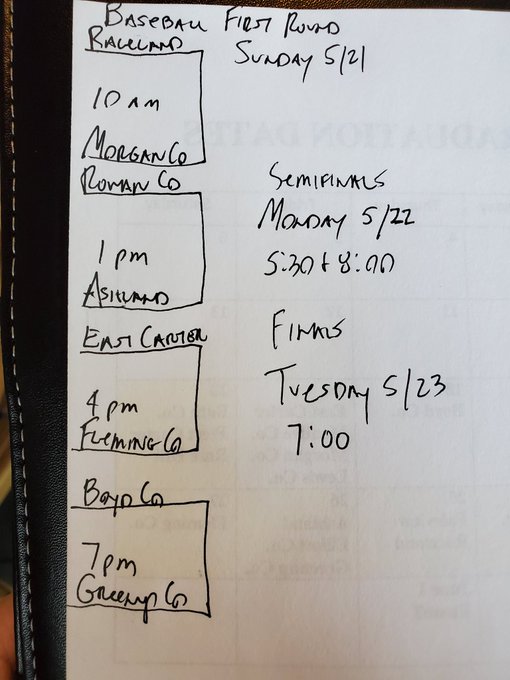 Baseball First Round
Sunday 5/21
Raceland
10 am
Morgan Co
Rowan Co
1 pm
Ashland
East Carter
4 pm
Fleming Co
Boyd Co
7 pm
Greenup Co
Semifinals
Monday 5/22
5:30 + 8:00
Finals
Tuesday 5/23
7:00
GRADUATION DATES